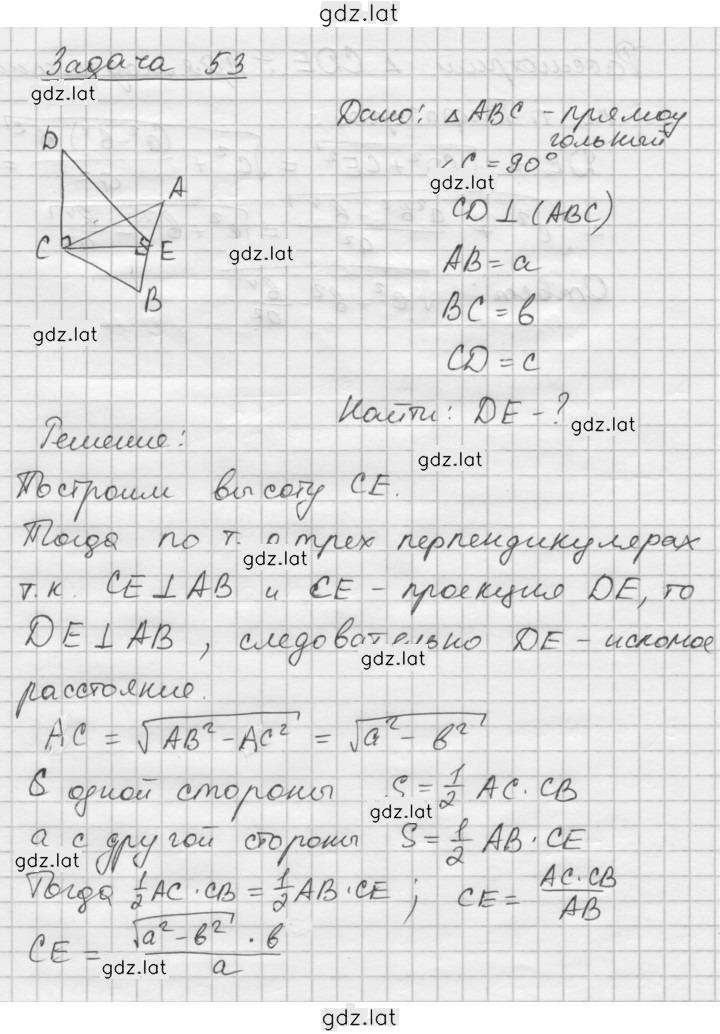 gdz.lat
Задача 53
gdz.lat
Дано: △ABC - прямоу
гольный
∠C = 90°
gdz.lat
D
A
C
E
B
CD⊥(ABC)
gdz.lat
AB = a
BC = в
gdz.lat
CD = c
Найти: DE - ?
gdz.lat
Решение:
gdz.lat
Построим высоту CE.
Тогда по т. о трех перпендикулярах
gdz.lat
т.к. CE⊥AB и CE - проекция DE, то
DE⊥AB, следовательно DE - искомое
gdz.lat
расстояние.
AC = √(AB² - AC²) = √(a² - в²)
С одной стороны S = 1/2 AC · CB
gdz.lat
а с другой стороны S = 1/2 AB · CE
gdz.lat
Тогда 1/2 AC · CB = 1/2 AB · CE ; CE = AC · CB / AB
CE = √(a² - в²) · в / a
gdz.lat
gdz.lat